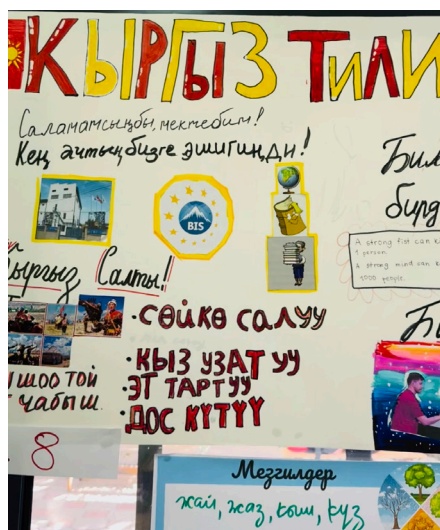 КЫРГЫЗ ТИЛИ
Саламатсыңбы, мектебим!
Кең ачтың бизге эшигиңди!
Бил
бирд
BIS
A strong fist can k
1 person.
A strong mind can k
1000 people.
Кыргыз Салты!
· СӨЙКӨ САЛУУ
· КЫЗ УЗАТУУ
· ЭТ ТАРТУУ
· ДОС КҮТҮҮ
ШОО ТОЙ
ЧАБЫШ.
8
Мезгилдер
жай, жаз, кыш, күз